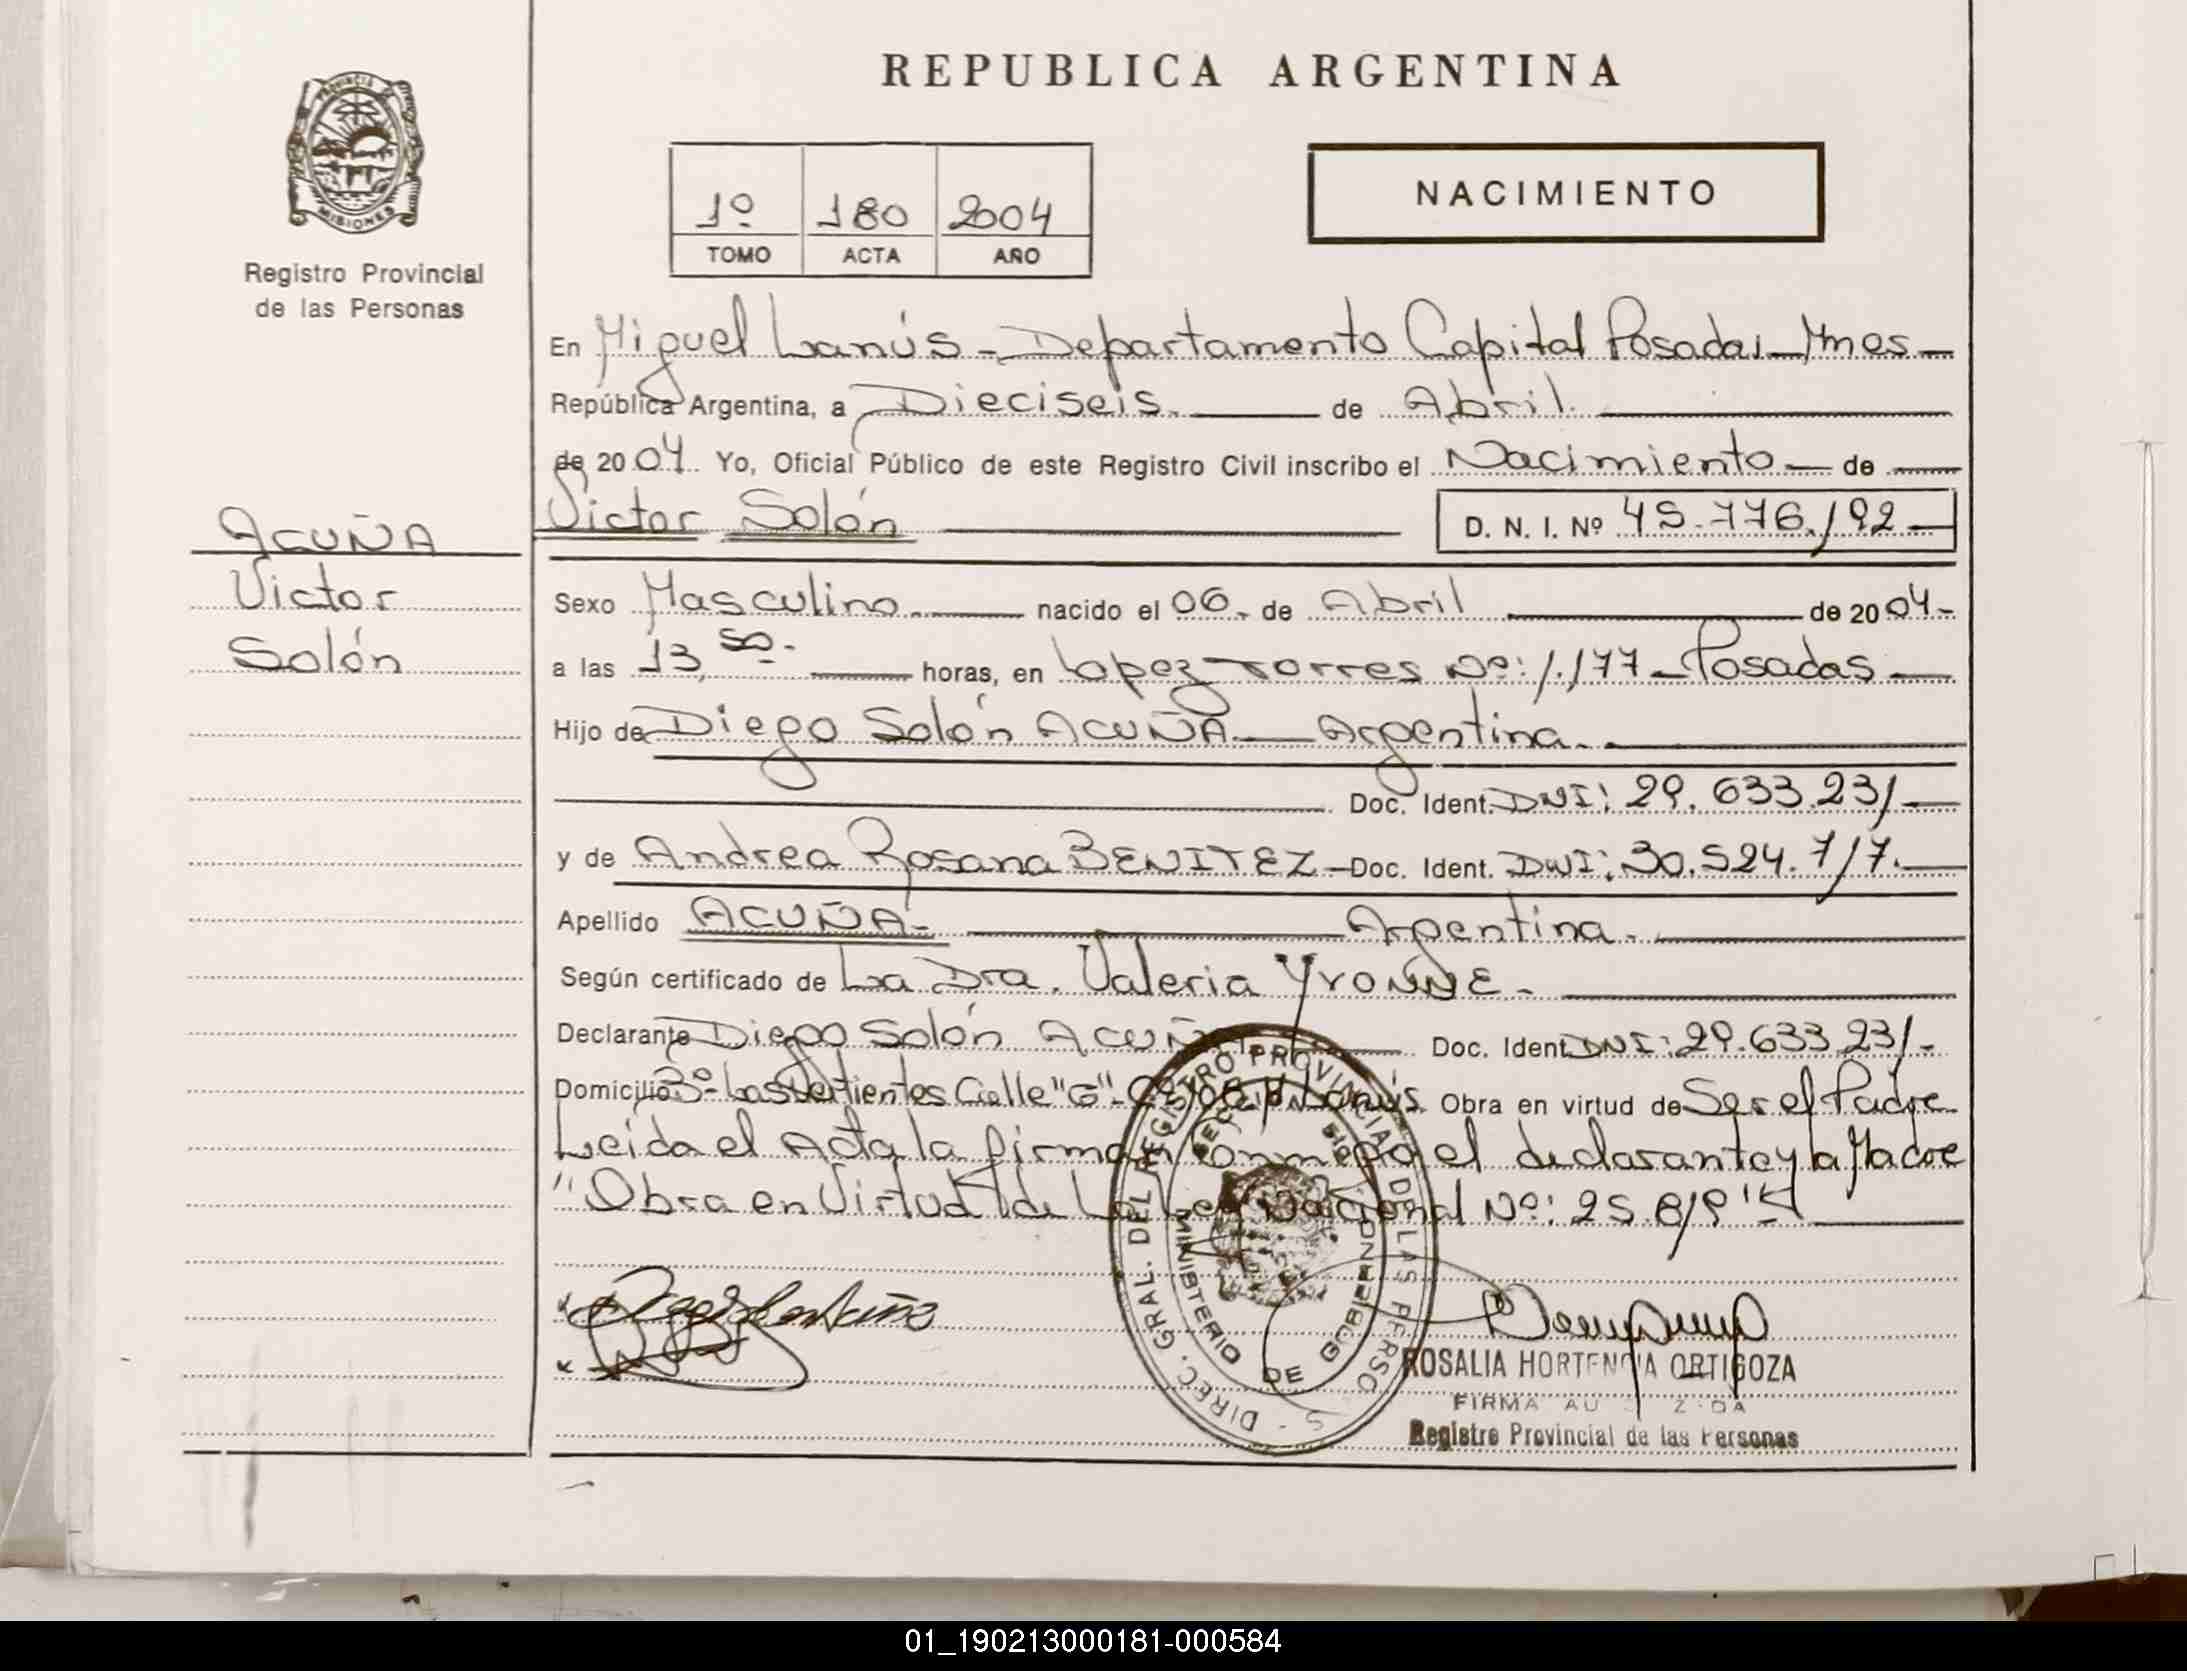 REPUBLICA ARGENTINA
PROVINCIA DE
MISIONES
Registro Provincial
de las Personas
1º 180 2004
TOMO ACTA AÑO
NACIMIENTO
En Miguel Lanús - Departamento Capital Posadas - Mnes -
República Argentina, a Dieciseis. de Abril.
de 2004 Yo, Oficial Público de este Registro Civil inscribo el Nacimiento - de
Victor Solón D. N. I. Nº 45.776.192 -
ACUÑA
Victor
Solón
Sexo Masculino. nacido el 06. de Abril de 2004-
a las 13,50.- horas, en Lopez Torres Nº: 1.177 - Posadas -
Hijo de Diego Solón ACUÑA - Argentina.
Doc. Ident. DNI: 29.633.231 -
y de Andrea Rosana BENITEZ - Doc. Ident. DNI: 30.524.717.-
Apellido ACUÑA.- Argentina.
Según certificado de La Dra. Valeria YVONNE.-
Declarante Diego Solón ACUÑA Doc. Ident. DNI: 29.633.231-
Domicilio Bº- Las Vertientes Calle "G"- Lanús. Obra en virtud de Ser el Padre
Leida el Acta la firman conmigo el declarante y la Madre
"Obra en Virtud de la Ley Nacional Nº: 25.819"
DIREC. GRAL. DEL REGISTRO PROVINCIAL DE LAS PERSO S -
MINISTERIO DE GOBIERNO
ROSALIA HORTENCIA ORTIGOZA
FIRMA AUTORIZADA
Registro Provincial de las Personas
01_190213000181-000584